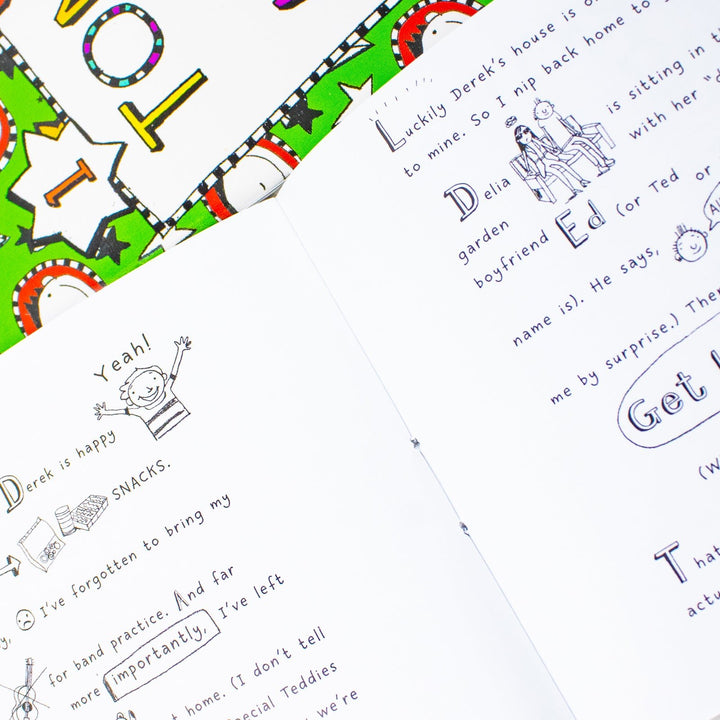 TO
1
Yeah!
Derek is happy
SNACKS.
I've forgotten to bring my
for band practice. And far
more importantly, I've left
at home. (I don't tell
Special Teddies
we're
Luckily Derek's house is
to mine. So I nip back home to
Delia is sitting in
garden with her
boyfriend Ed (or Ted or
name is). He says,
me by surprise.)
Get
That